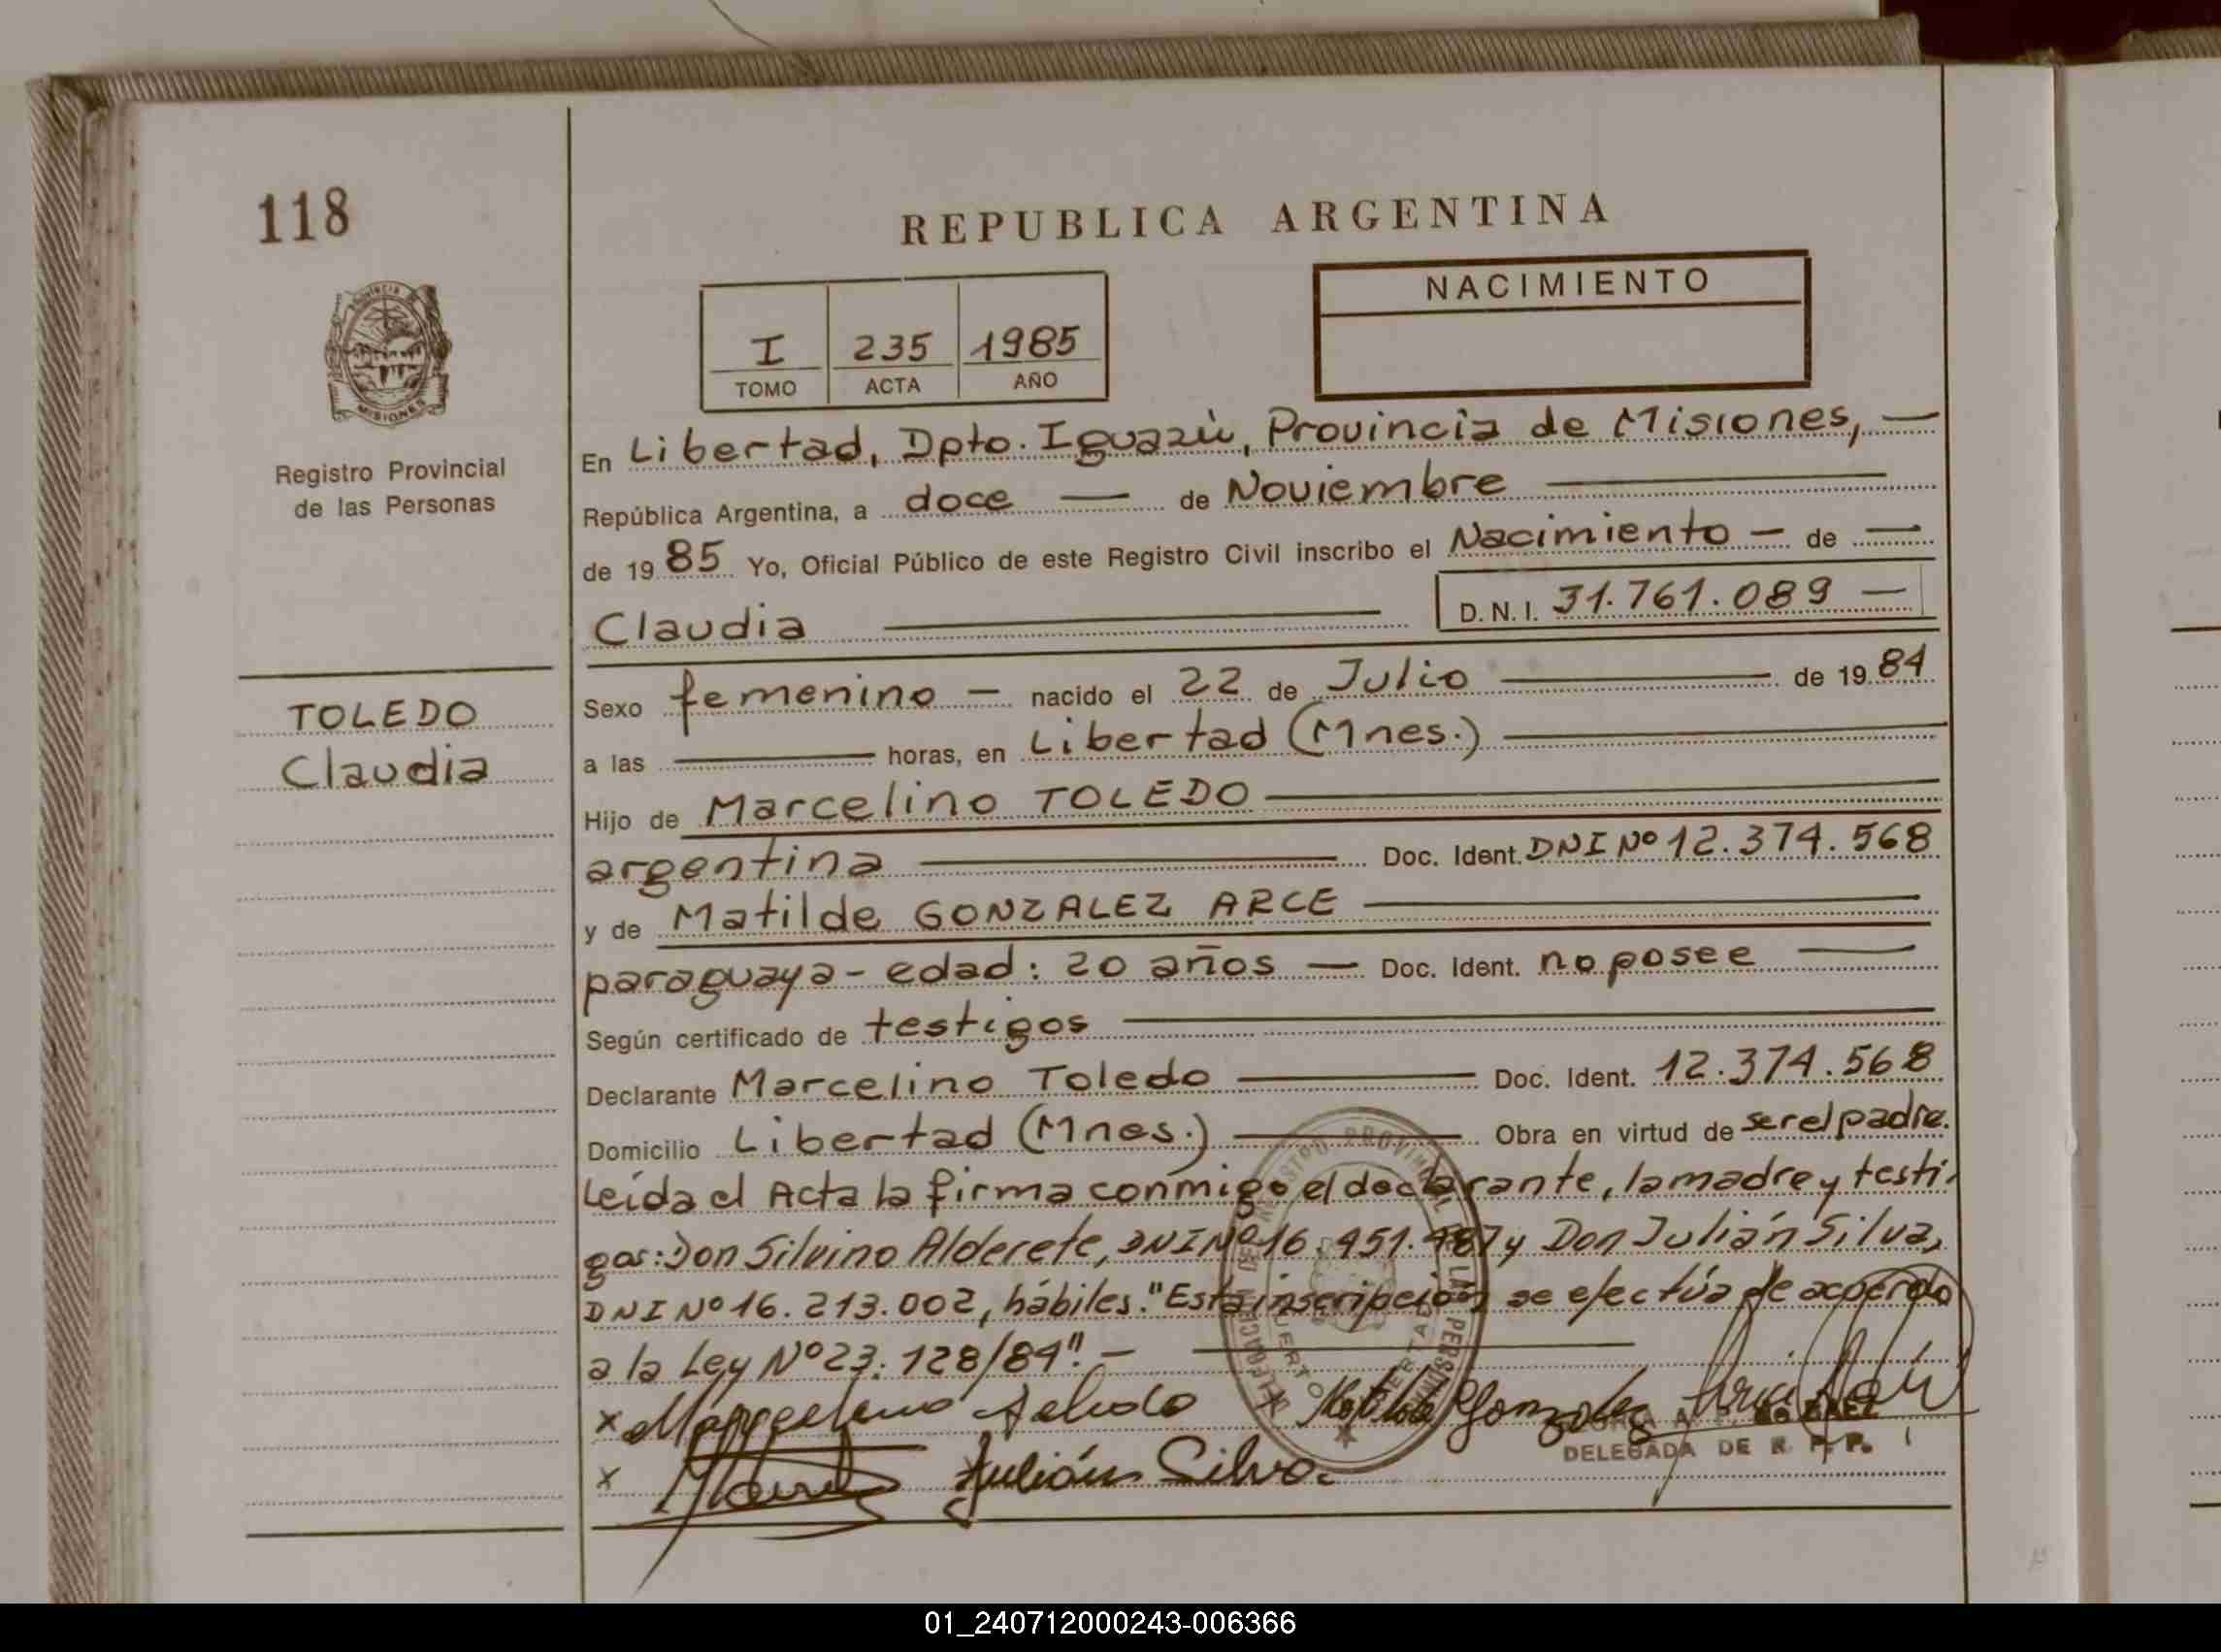 118
REPUBLICA ARGENTINA
NACIMIENTO
I 235 1985
TOMO ACTA AÑO
MISIONES
Registro Provincial
de las Personas
En Libertad, Dpto. Iguazú, Provincia de Misiones, —
República Argentina, a doce — de Noviembre —
de 1985 Yo, Oficial Público de este Registro Civil inscribo el Nacimiento — de —
Claudia — D.N.I. 31.761.089 —
TOLEDO
Claudia
Sexo femenino — nacido el 22 de Julio — de 1984
a las — horas, en Libertad (Mnes.) —
Hijo de Marcelino TOLEDO —
argentina — Doc. Ident. DNI Nº 12.374.568
y de Matilde GONZALEZ ARCE —
paraguaya - edad: 20 años — Doc. Ident. no posee —
Según certificado de testigos —
Declarante Marcelino Toledo — Doc. Ident. 12.374.568
Domicilio Libertad (Mnes.) — Obra en virtud de ser el padre.
Leída el Acta la firma conmigo el declarante, la madre y testi-
gos: Don Silvino Alderete, DNI Nº 16.951.987 y Don Julián Silva,
DNI Nº 16.213.002, hábiles. "Esta inscripción se efectúa de acuerdo
a la Ley Nº 23.128/84". —
x Marcelino Toledo Matilde Gonzalez Arce
DELEGADA DE R. P. P.
x Julián Silva.
01_240712000243-006366